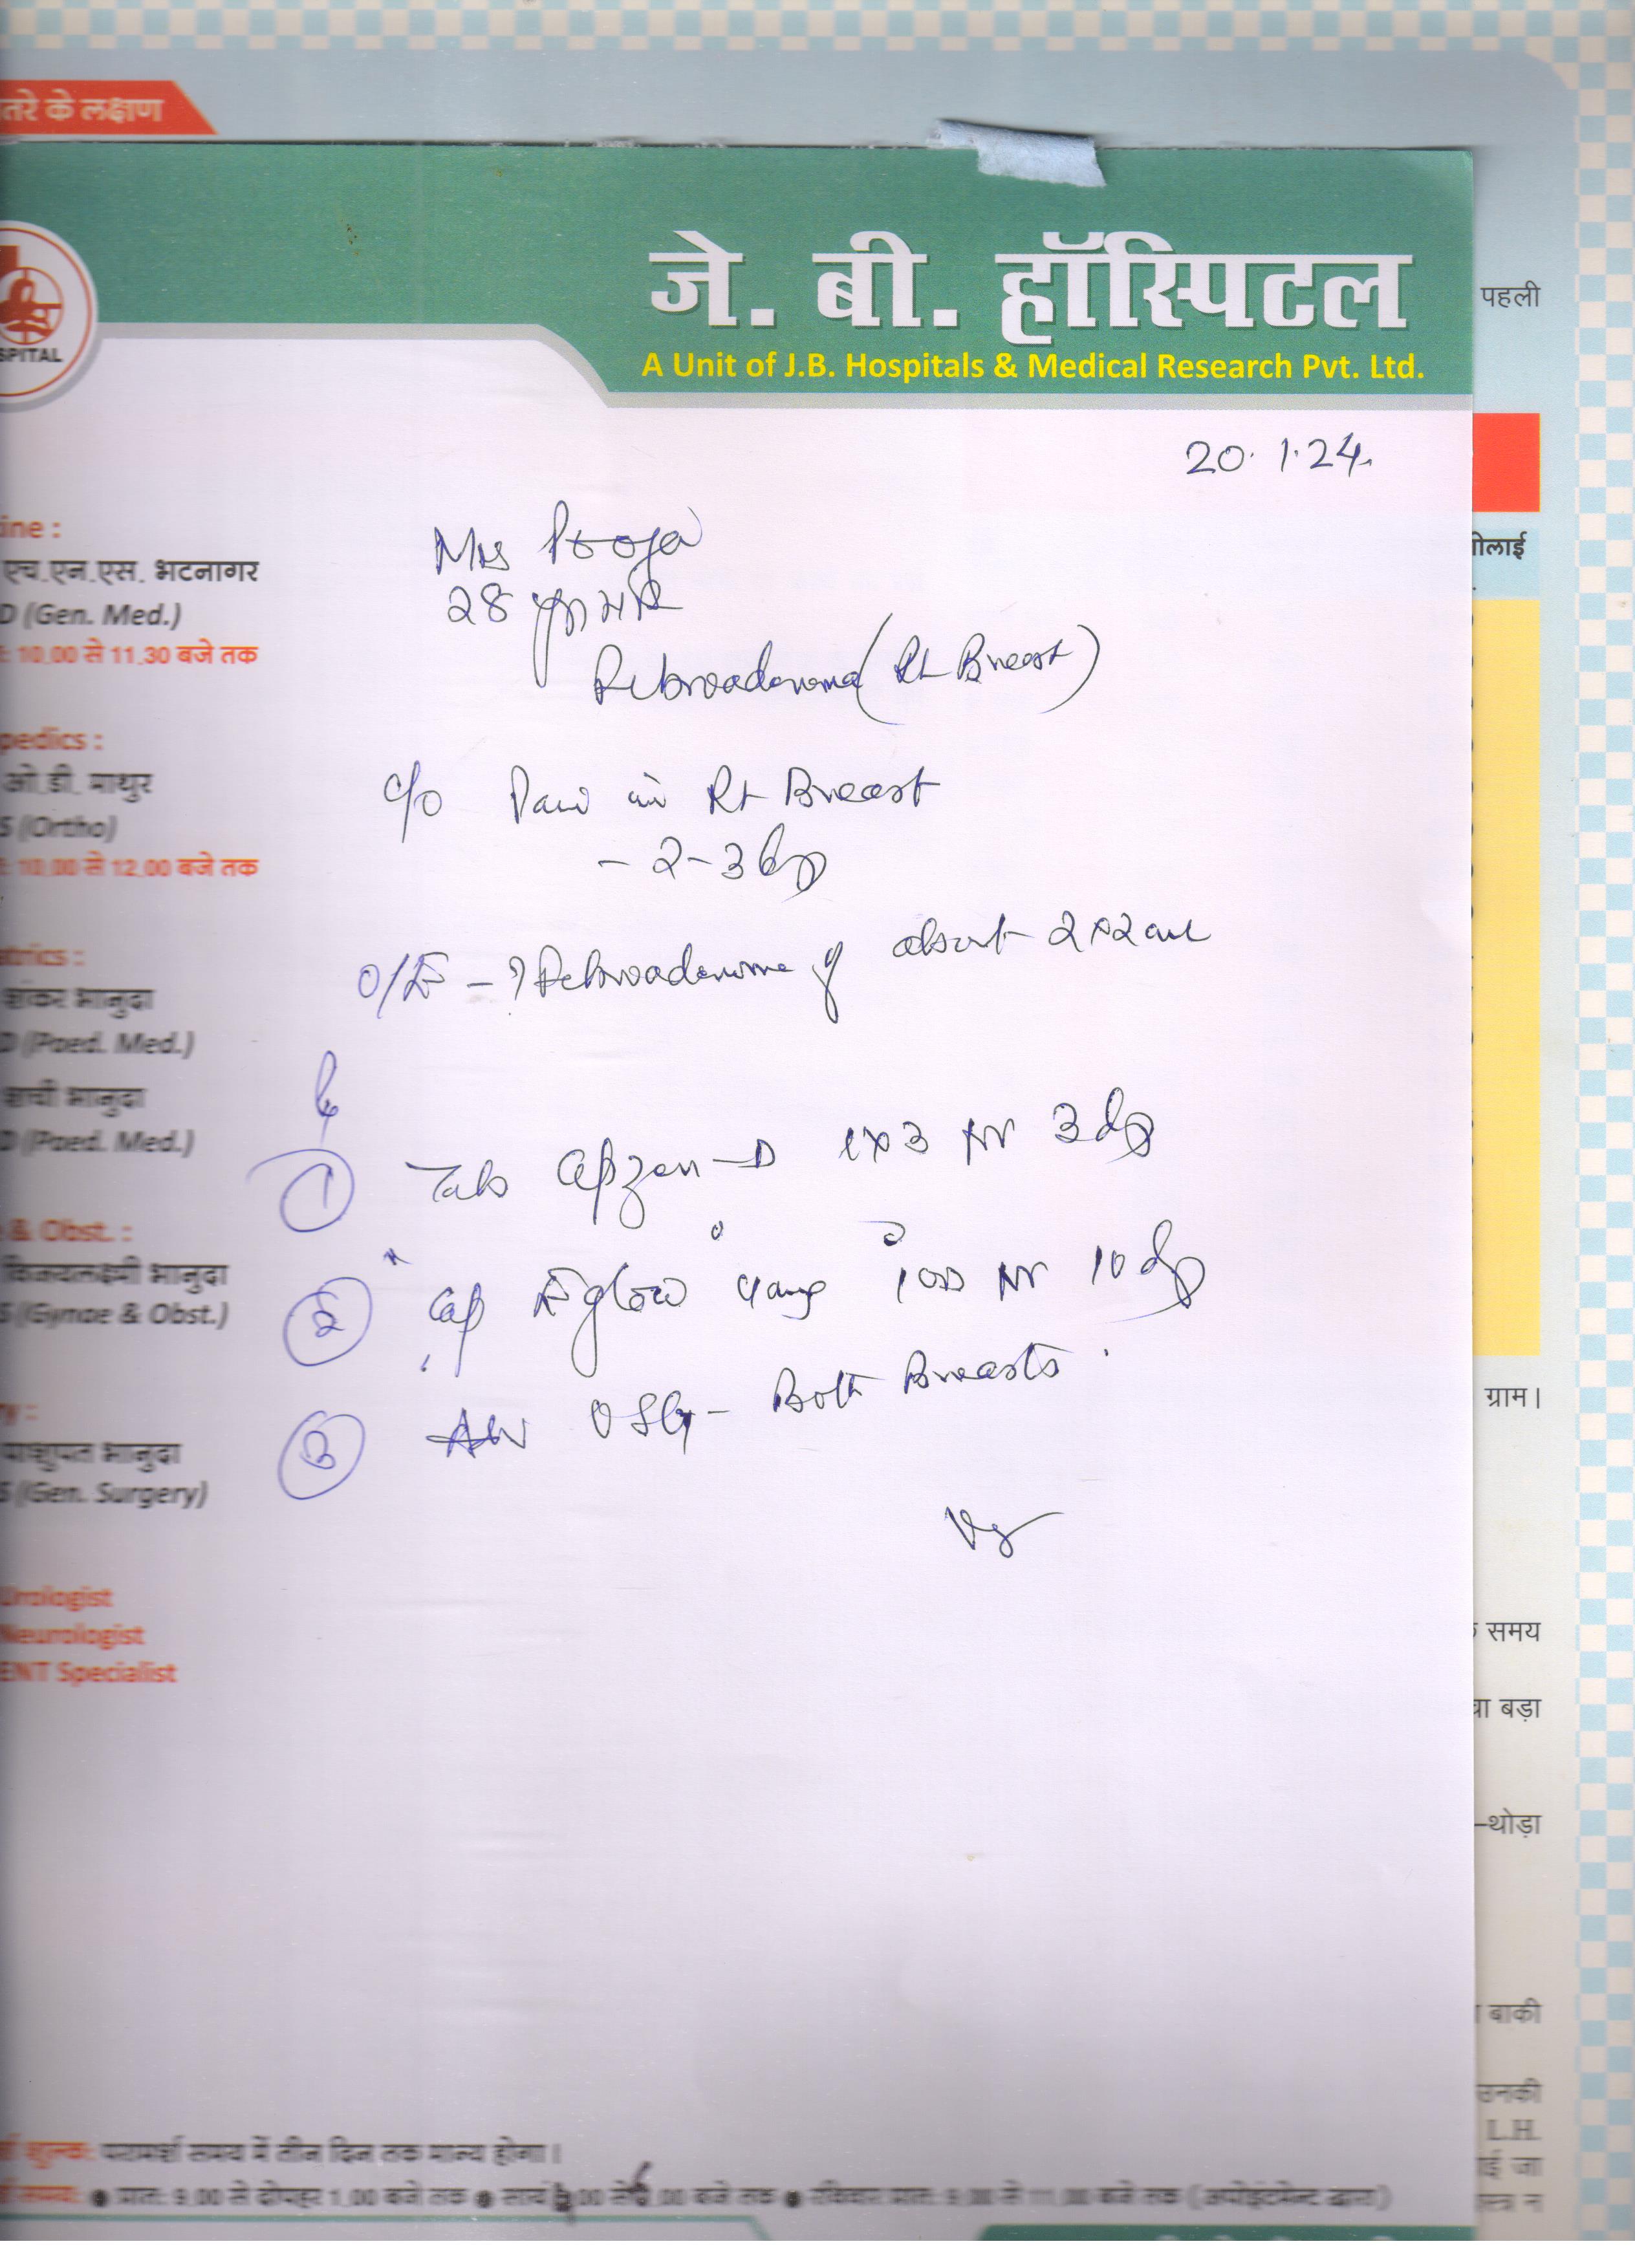 तरे के लक्षण
जे. बी. हॉस्पिटल
SPITAL
A Unit of J.B. Hospitals & Medical Research Pvt. Ltd.
पहली
20.1.24.
ine :
एच.एन.एस. भटनागर
D (Gen. Med.)
10.00 से 11.30 बजे तक
Mrs Pooja
28
Fibroadenoma (Rt Breast)
pedics :
ओ.डी. माथुर
S (Ortho)
10.00 से 12.00 बजे तक
c/o Pain in Rt Breast
- 2-3 days
O/E - ? Fibroadenoma of about 2x2 cm
atrics :
शंकर भानुदा
D (Paed. Med.)
भानुदा
D (Paed. Med.)
1 Tab 1x3 for 3 days
& Obst. :
विजयलक्ष्मी भानुदा
S (Gynae & Obst.)
2 Cap 1OD for 10 days
3 USG - Both Breasts
ग्राम।
y :
पाशुपत भानुदा
S (Gen. Surgery)
Urologist
Neurologist
ENT Specialist
समय
बड़ा
-थोड़ा
बाकी
उनकी
L.H.
शुल्क: परामर्श समय में तीन दिन तक मान्य होगा।
समय: ● प्रात: 9.00 से दोपहर 1.00 बजे तक ● .00 बजे तक ● रविवार प्रात: 9.00 से 11.00 बजे तक (अपोइंटमेन्ट द्वारा)